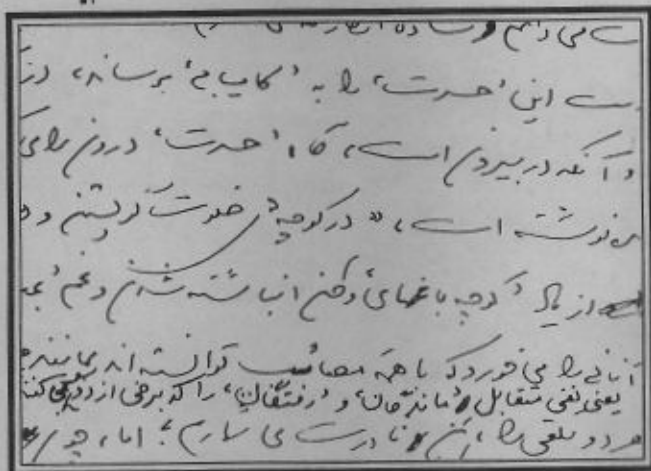 ست می دانم و ساده انگارانه
ست این 'حسرت' را به 'کامیابی' برساند، در
و آنکه در بیرون است، گاه 'حسرت' درون را می
نوشته است، «در کوچه ی خلوت گریستن و
از یاد 'کوچه باغهای' وطن انباشته شدن و غم
آنانی را می خورد که با همه مصائب توانسته اند بمانند
یعنی نفی متقابل 'ماندگان' و 'رفتگان' را که برخی از دو سو می کنند
هر دو تلقی را، نادرست می دارم؛ اما، چون